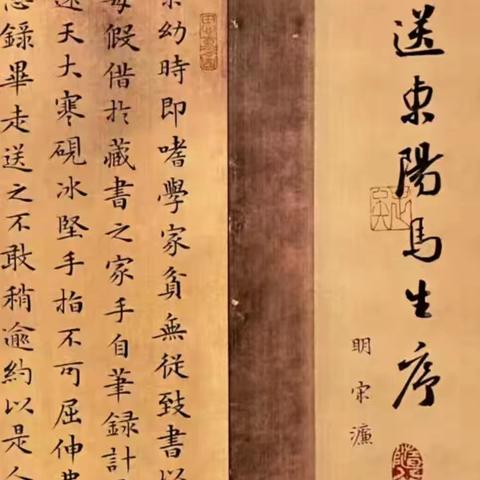 送東陽馬生序
明宋濂
余幼時即嗜學家貧無從致書以
每假借於藏書之家手自筆錄計
還天大寒硯冰堅手指不可屈伸弗
怠錄畢走送之不敢稍逾約以是人